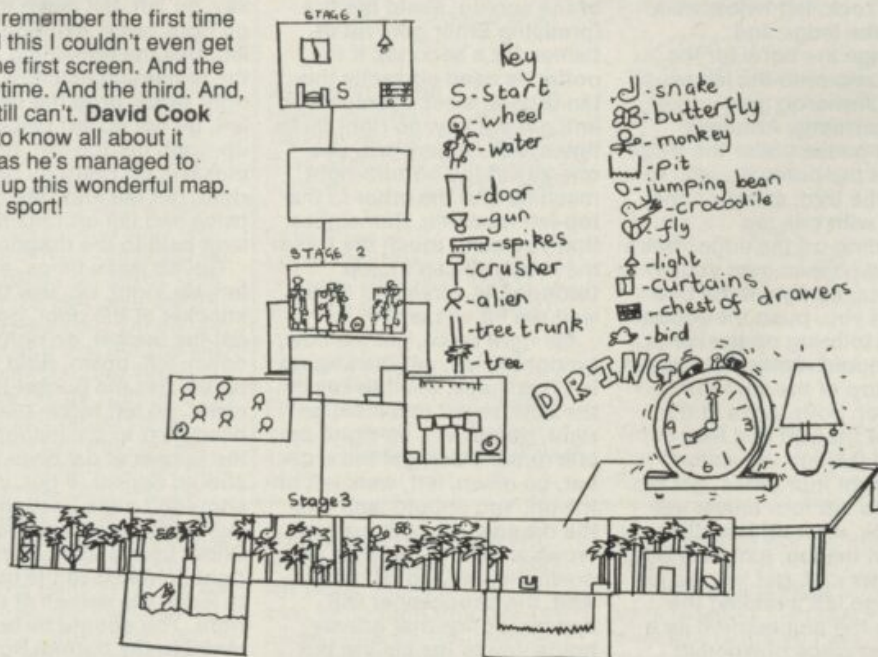 remember the first time
this I couldn't even get
first screen. And the
time. And the third. And,
still can't. David Cook
to know all about it
as he's managed to
up this wonderful map.
sport!
STAGE 1
S
Key
S - Start
- wheel
- water
- door
- gun
- spikes
- crusher
- alien
- tree trunk
- tree
- snake
- butterfly
- monkey
- pit
- jumping bean
- crocodile
- fly
- light
- curtains
- chest of drawers
- bird
STAGE 2
DRING
12
9 3
6
Stage3